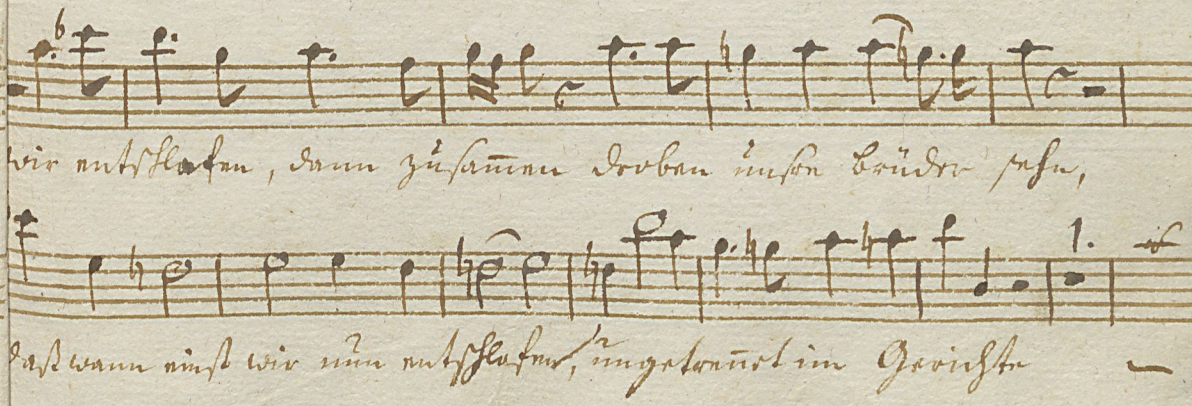 wir entschlafen, dann zusam̅en droben unsre brüder sehn,
1.
daß wann einst wir nun entschlafen, ungetren̅et im Gerichte —